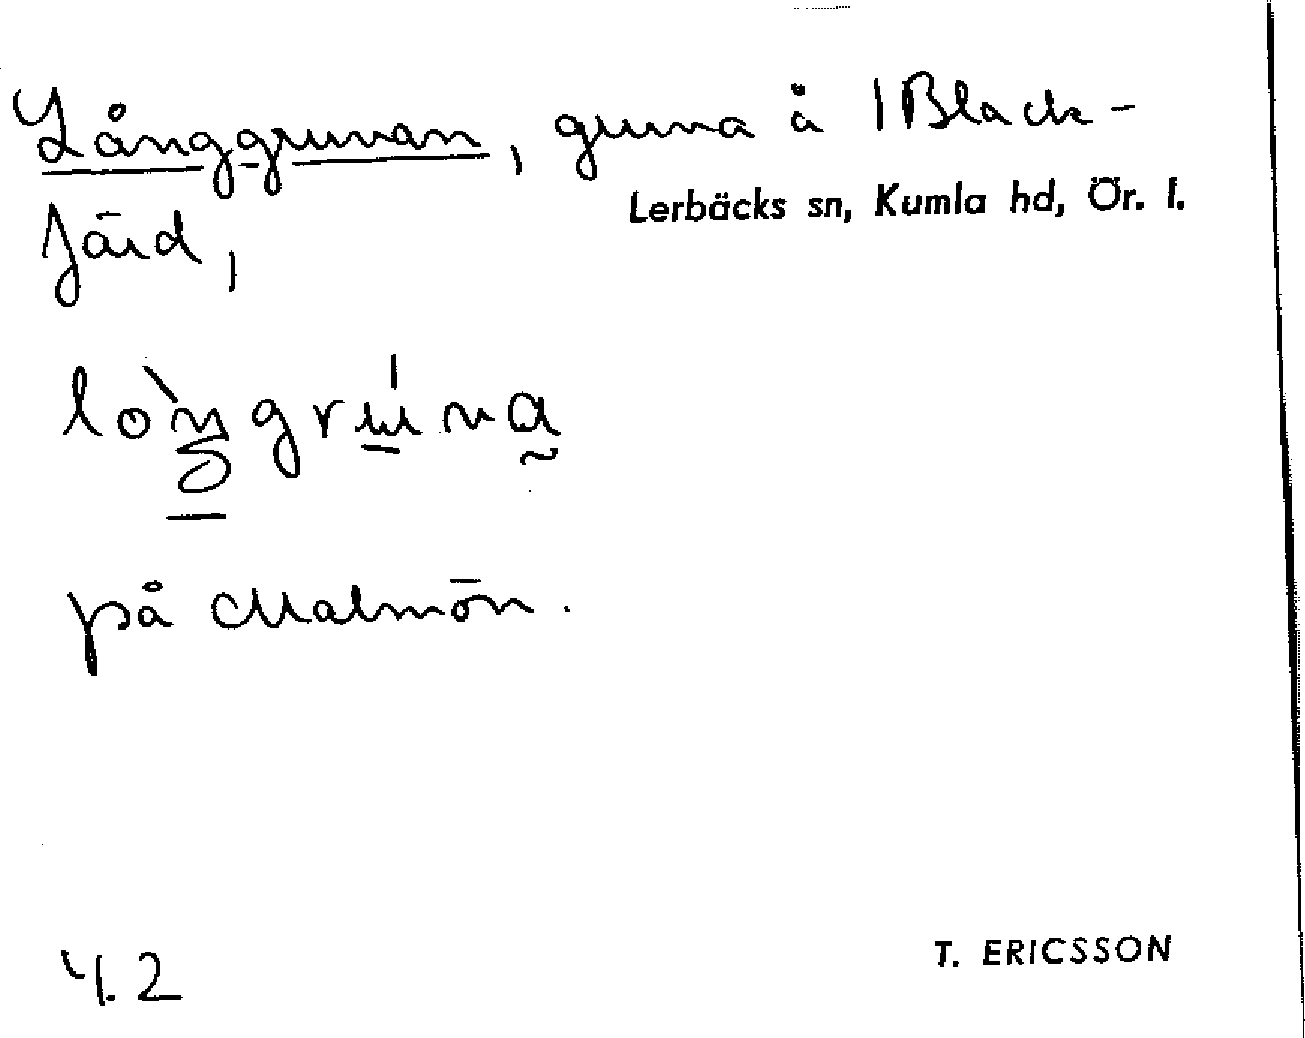 Långgruvan, gruva å /Black-
Lerbäcks sn, Kumla hd, Ör. l.
färd,
på Malmön.
4.2
T. ERICSSON